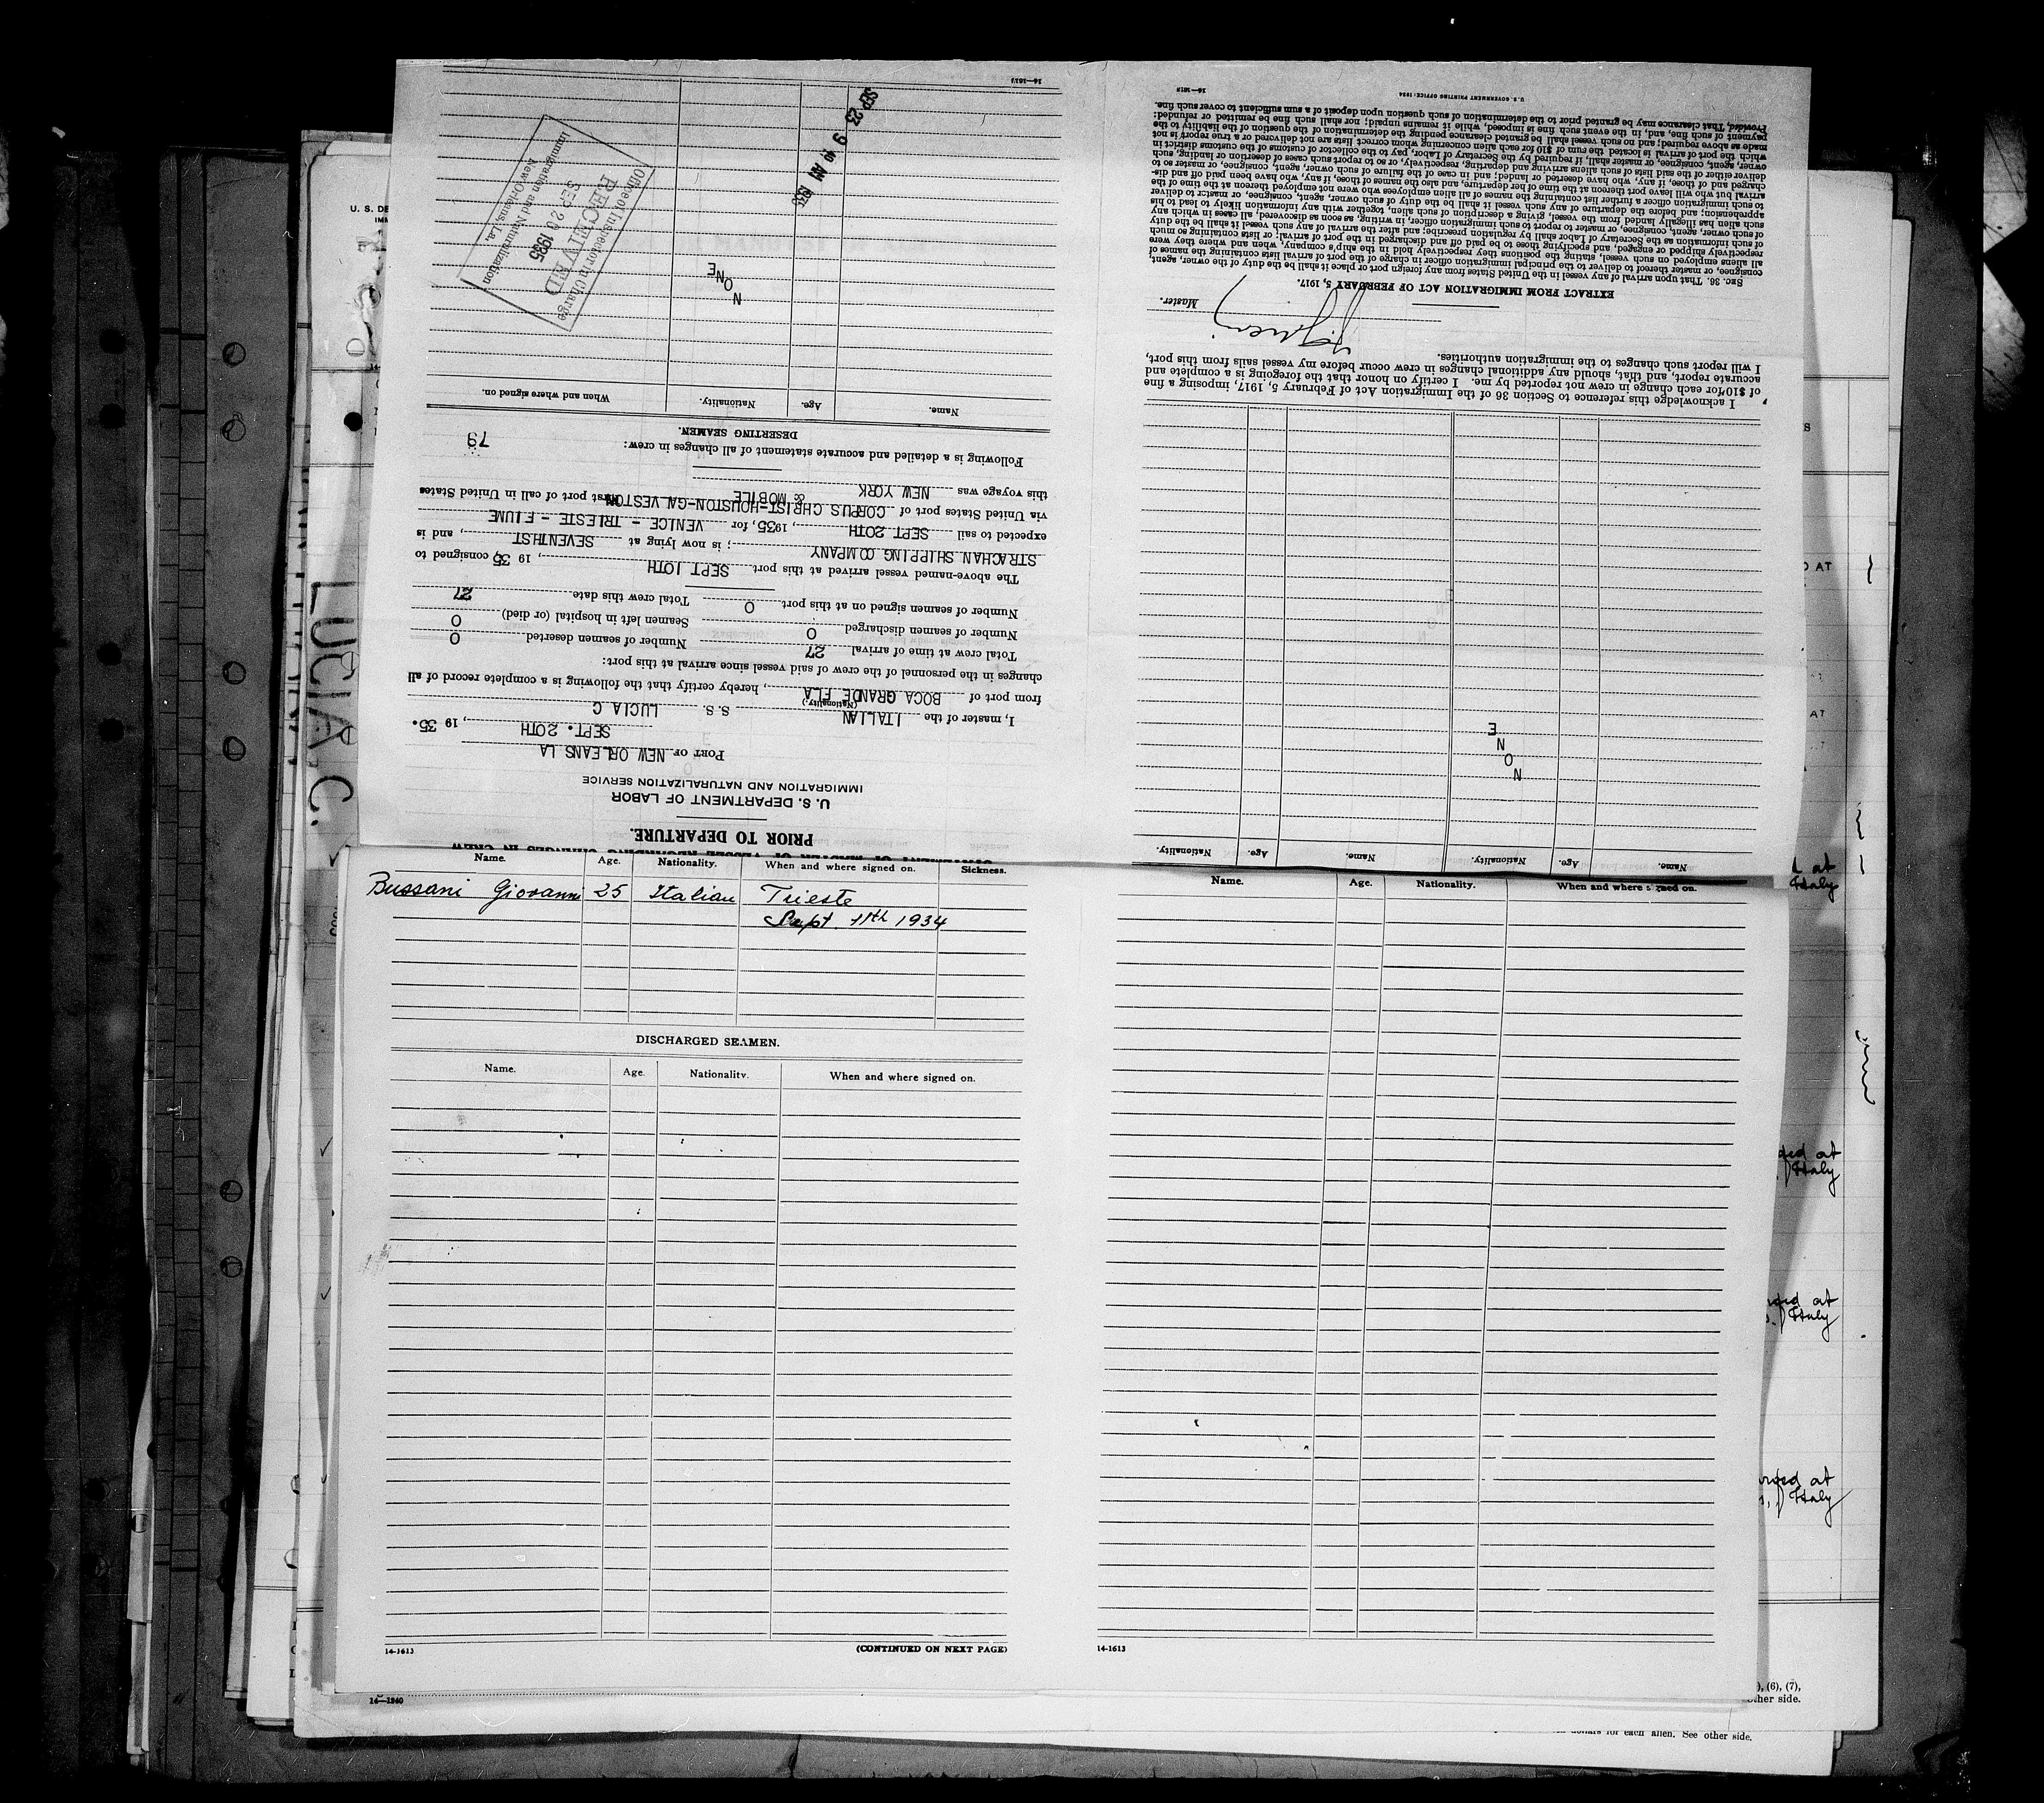 STATEMENT OF MASTER OF VESSEL REGARDING CHANGES IN CREW
PRIOR TO DEPARTURE.
U. S. DEPARTMENT OF LABOR
IMMIGRATION AND NATURALIZATION SERVICE
PORT OF NEW ORLEANS LA
SEPT. 20TH, 1935.
I, master of the ITALIAN S. S. LUCIA C
(Nationality)
from port of BOCA GRANDE FLA, hereby certify that the following is a complete record of all
changes in the personnel of the crew of said vessel since arrival at this port:
Total crew at time of arrival 27 Number of seamen deserted 0
Number of seamen discharged 0 Seamen left in hospital (or died) 0
Number of seamen signed on at this port 0 Total crew this date 27
The above-named vessel arrived at this port SEPT 10TH, 1935 consigned to
STRACHAN SHIPPING COMPANY; is now lying at SEVENTHST, and is
expected to sail SEPT 20TH, 1935, for VENICE - TRIESTE - FIUME
via United States port of CORPUS CHRIST-HOUSTON-GALVESTON first port of call in United States
& MOBILE
this voyage was NEW YORK
Following is a detailed and accurate statement of all changes in crew: 79
DESERTING SEAMEN.
Name. Age. Nationality. When and where signed on.
NONE
Office of Inspector in Charge
RECEIVED
SEP 20 1935
Immigration and Naturalization
New Orleans, La.
SEP 23 9 19 AM 1935
16—1613
Name. Age. Nationality. Name. Age. Nationality.
N
O
N
E
I acknowledge this reference to Section 36 of the Immigration Act of February 5, 1917, imposing a fine
of $10 for each change in crew not reported by me. I certify on honor that the foregoing is a complete and
accurate report, and that, should any additional changes in crew occur before my vessel sails from this port,
I will report such changes to the immigration authorities.
Master.
EXTRACT FROM IMMIGRATION ACT OF FEBRUARY 5, 1917.
SEC. 36. That upon arrival of any vessel in the United States from any foreign port or place it shall be the duty of the owner, agent,
consignee, or master thereof to deliver to the principal immigration officer in charge of the port of arrival lists containing the names of
all aliens employed on such vessel, stating the positions they respectively hold in the ship's company, when and where they were
respectively shipped or engaged, and specifying those to be paid off and discharged in the port of arrival; or lists containing so much
of such information as the Secretary of Labor shall by regulation prescribe; and after the arrival of any such vessel it shall be the duty
of such owner, agent, consignee, or master to report to such immigration officer, in writing, as soon as discovered, all cases in which any
such alien has illegally landed from the vessel, giving a description of such alien, together with any information likely to lead to his
apprehension; and before the departure of any such vessel it shall be the duty of such owner, agent, consignee, or master to deliver
to such immigration officer a further list containing the names of all alien employees who were not employed thereon at the time of the
arrival but who will leave port thereon at the time of her departure, and also the names of those, if any, who have been paid off and dis-
charged and of those, if any, who have deserted or landed; and in case of the failure of such owner, agent, consignee, or master so to
deliver either of the said lists of such aliens arriving and departing, respectively, or so to report such cases of desertion or landing, such
owner, agent, consignee, or master shall, if required by the Secretary of Labor, pay to the collector of customs of the customs district in
which the port of arrival is located the sum of $10 for each alien concerning whom correct lists are not delivered or a true report is not
made as above required; and no such vessel shall be granted clearance pending the determination of the question of the liability to the
payment of such fine, and, in the event such fine is imposed, while it remains unpaid; nor shall such fine be remitted or refunded:
Provided, That clearance may be granted prior to the determination of such question upon deposit of a sum sufficient to cover such fine.
U. S. GOVERNMENT PRINTING OFFICE: 1934
Name. Age. Nationality. When and where signed on. Sickness.
Bussani Giovanni 25 Italian Trieste
Sept. 11th 1934
DISCHARGED SEAMEN.
Name. Age. Nationality. When and where signed on.
14-1613 (CONTINUED ON NEXT PAGE)
Name. Age. Nationality. When and where signed on.
14-1613
LUCIA C.
U. S. DE
16—1240
at
Italy
ded at
Italy
at
Italy
at
Italy
), (6), (7),
other side.
dollars for each alien. See other side.